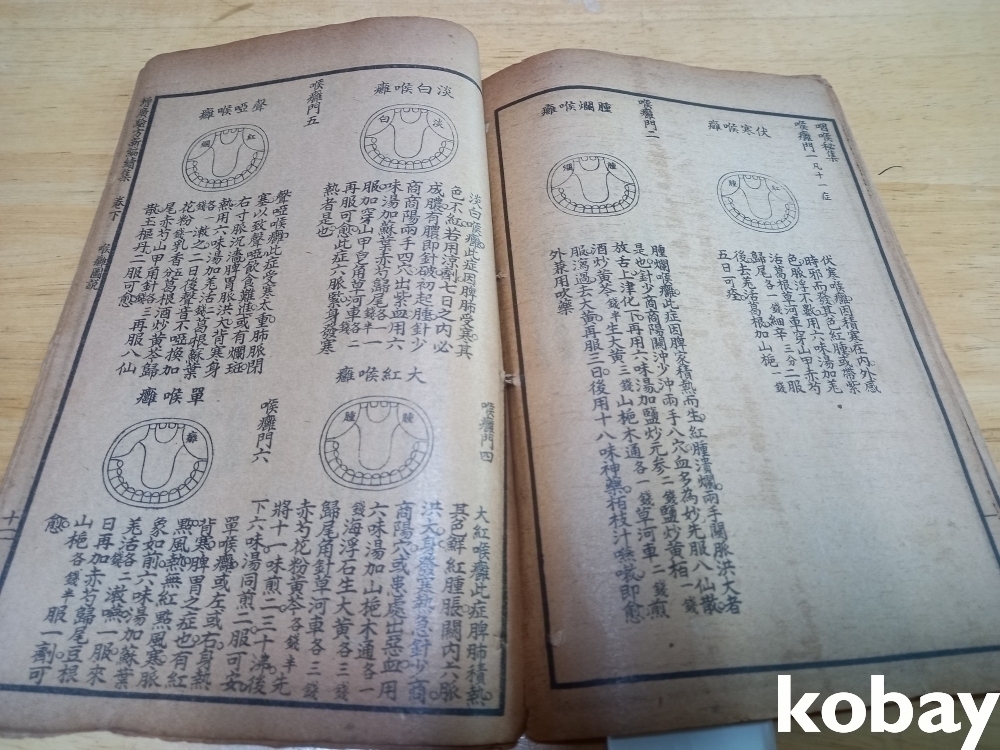 咽喉秘集
喉癰門一凡十一症
伏寒喉癰
紅
腫
伏寒喉癰因積寒在內外感
時邪而發其色紅腫或帶紫
色脈浮不數用六味湯加羌
活葛根草河車穿山甲赤芍
歸尾各一錢細辛三分二服
後去羌活葛根加山梔一錢
五日可痊
喉癰門二
腫爛喉癰
腫
爛
腫爛喉癰此症因脾家積熱而生紅腫潰爛兩手關脈洪大者
是也針少商商陽關沖少沖兩手八穴血多為妙先服八仙散
放舌上津化下再用六味湯加鹽炒元參二錢鹽炒黃柏一錢
酒炒黃芩一錢半生大黃三錢山梔木通各一錢草河車二錢煎
服瀉過去大黃再服三日後用十八味神藥柏枝汁嗽喉即愈
外兼用吹藥
淡白喉癰
淡
白
淡白喉癰此症因脾肺受寒其
色不紅若用涼劑七日之內必
成膿有膿即針破初起腫針少
商商陽兩手四穴出紫血用六
味湯加蘇葉赤芍歸尾各一錢半
服加穿山甲皂角草河車各二
再服可愈此症六脈緊身發寒
熱者是也
喉癰門四
大紅喉癰
腫
腫
大紅喉癰此症脾肺積熱
其色鮮紅腫脹關內六脈
洪大身發寒熱急針少商
商陽穴或患處出惡血用
六味湯加山梔木通各一
錢海浮石生大黃各三錢
歸尾角針草河車各三錢
赤芍花粉黃芩各錢半先
將十一味煎二三十沸後
下六味湯同煎二服可安
喉癰門五
聲啞喉癰
紅
爛
聲啞喉癰此症受寒太重肺脈閉
塞以致聲啞飲食難進或有爛斑
右寸脈沉濇脾胃脈洪大背寒身
熱用六味湯加羌活錢葛根蘇葉
各一錢漱之二日後聲音不啞換加
花粉錢乳香五分葛根酒炒黃芩歸
尾赤芍山甲角針各三錢再服八仙
散玉樞丹二服可愈
喉癰門六
單喉癰
癰
單喉癰或左或右身熱
背寒脾胃之症也有紅
點風熱無紅點風寒脈
象如前六味湯加蘇葉
羌活各二錢漱嚥一服來
日再加赤芍歸尾豆根
山梔各錢半服一劑可
愈
增廣驗方新編續集
卷下
喉癰圖說